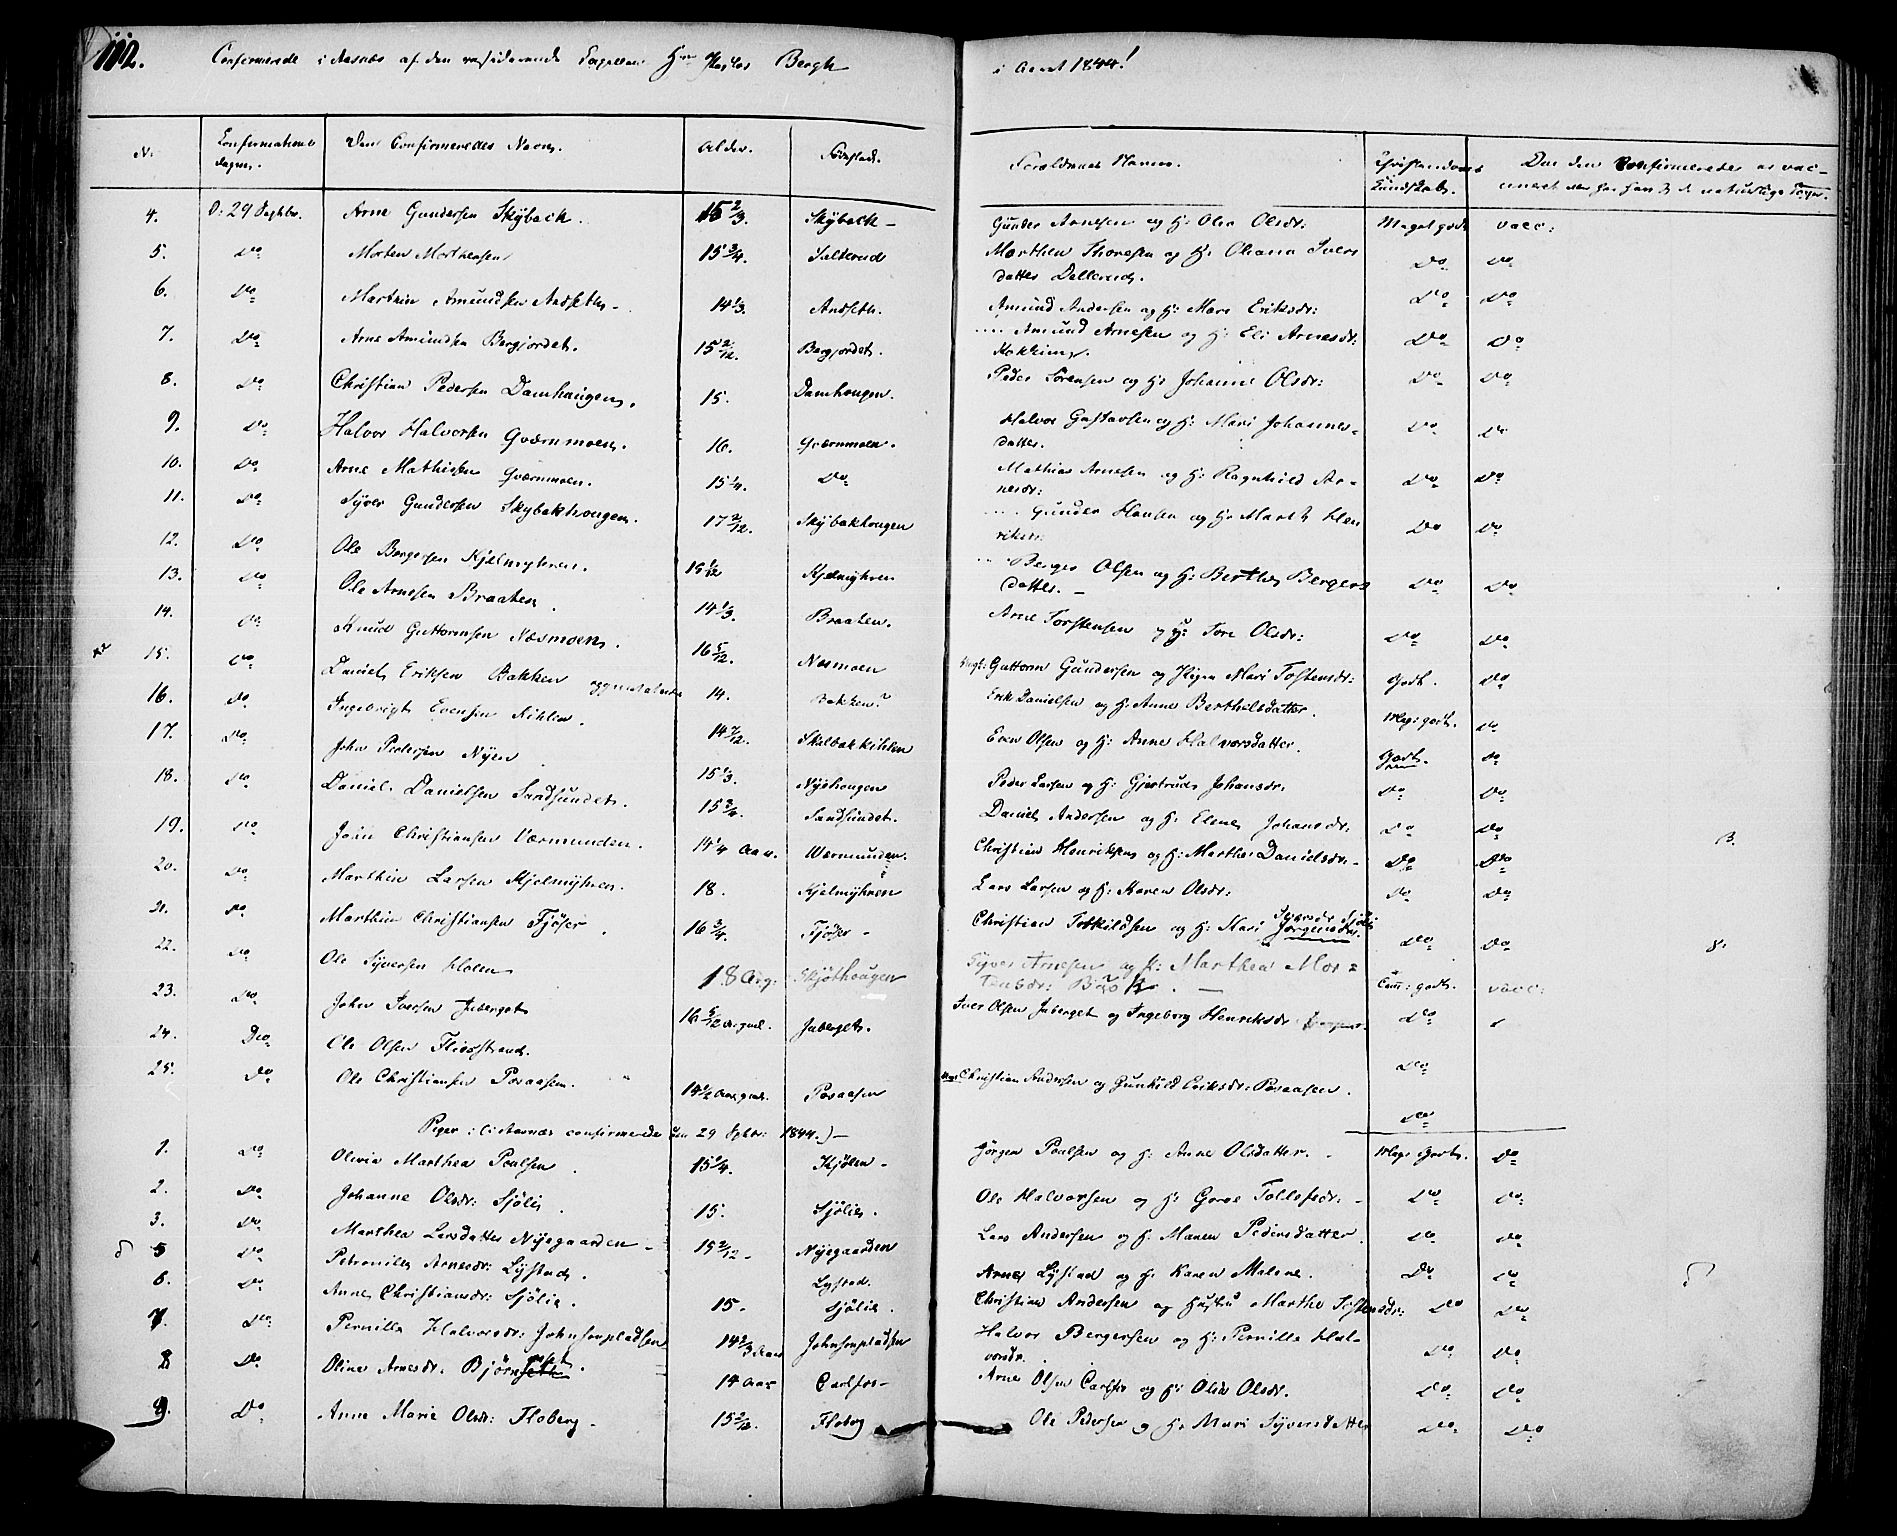 112. Confirmerede i Aasnæs af den residerende Capellan Hr. Pastor Bergh i Aaret 1844!
N. Confirmations dagen. Den Confirmeredes Navn. Alder. Fødested. Forældrenes Navne. Christendoms Kundskab. Om den Confirmerede er vac-
cineret eller har havt de naturlige Kopper.
4. D: 29 Septbr. Arne Gundersen Skÿbach. 15 2/3. Skÿbach - Gunder Arnesen og H: Olea Olsdr: Meget godt vacc:
5. Do Morten Morthensen 15 3/4. Marthen Thoresen og H: Oliana Ivers
datter Dellerud. Do Do
6. Do Marthin Amundsen Andseth. 14 1/3. Andseth. Amund Andersen og H: Mari Eriksdr: Do Do
7. Do Arne Amundsen Bergjordet. 15 2/12. Bergjordet. Amund Arnesen og H: Eli Arnesdr:
Do Do
8. Do Christian Pedersen Damhaugen. 15. Damhougen. Peder Sörensen og H: Johanne Olsdr: Do Do
9. Do Halvor Halvorsen Qværnmoen. 16. Qværnmoen. Halvor Gustavsen og H: Mari Johannes-
datter. Do Do
10. Do Arne Mathisen Qværnmoen. 15 1/4. Do Mathias Arnesen og H: Ragnhild Ar-
nesdr: Do Do
11. Do Sÿver Gundersen Skybakhougen. 17 2/12. Skÿbakhougen Gunder Hansen og H: Marth Hen
riksdr: Do Do
12. Do Ole Bergersen Kjelmyhren. 15 1/12 Kjelmÿhren Berger Olsen og H: Berthe Bergers
datter. - Do Do
13. Do Ole Arnesen Braaten. 14 1/3. Braaten. Arne Torstensen og H: Tore Olsdr: Do Do
14. Do Knud Guttormsen Næsmoen. 16 5/12. Næsmoen Guttorm Gundersen og Pigen Mari Tostensdr: Godt. Do
15. Do Daniel Eriksen Bakken 14. Bakken Erik Danielsen og H: Anne Berthilsdatter. Meg: godt. Do
16. Do Ingebrigt Evensen Kihlen. 14 7/12. Skalbakkihlen Even Olsen og H: Anne Halvorsdatter. Godt. Do
17. Do John Pedersen Nÿen 15 1/3. Nÿehougen Peder Larsen og H: Gjertrud Johansdr: Do Do
18. Do Daniel Danielsen Sandsundet. 15 3/4. Sandsundet. Daniel Andersen og H: Elene Johansdr: Do Do
19. Do John Christiansen Værmunden. 14 1/4 Aar. Wærmunden. Christian Henriksens og H: Marthe Danielsdr. Do Do B.
20. Do Marthin Larsen Kjelmÿhren. 18. Kjelmÿhren Lars Larsen og H: Karen Olsdr: Do Do
21. Do Marthin Christiansen Fjöser. 16 3/4. Fjöser - Christian Torkildsen og H: Mari Jörgensdr. Do Do 8.
22. Do Ole Sÿversen Holen 18 Aar: Skjöthougen Sÿver Arnesen og H: Marthea Mor-
tensdr: Braa Com: godt. vacc:
23. Do John Iversen Juberget 16 5/12 Aar gml. Juberget. Iver Olsen Juberget og Ingeborg Henriksdr Do
24. Do Ole Olsen Flisstrand. Do
25. Do Ole Christiansen Poraasen. 14 1/2 Aar gml. Poraasen Christian Andersen og Gunhild Eriksdr: Poraasen. Do
Piger (i Aasnæs confirmerede den 29 Sptbr: 1844.) -
1. Do Olivia Marthea Poulsen 15 1/4. Kjölen - Jörgen Poulsen og H: Anne Olsdatter. Meg: Godt. Do
2. Do Johanne Olsdr: Sjölie. 15. Sjölie. Ole Halvorsen og H: Goroe Tollefsdr: Do Do
3. Do Marthea Larsdatter Nÿegaarden - 15 2/12 - Nÿegaarden Lars Andersen og H: Maren Pedersdatter. Do Do
5 Do Petronille Arnesdr: Lÿstad. Lystad. Arne Lÿstad og H: Karen Malene. Do Do
6. Do Anne Christiansdr: Sjölie. 15. Sjölie. Christian Andersen og Hustru Marthe Tostensdr: Do Do
7. Do Pernille Halvorsdr: Johnsonpladsen 14 2/3 Aar Johnsonpladsen Halvor Bergersen og H: Pernille Hal-
vorsdr. Do Do
8 Do Oline Arnesdr. Björnsett 14 Aar Carlsos - Arne Olsen Carlsos og H: Olea Olsdr. Do Do
9. Do Anne Marie Olsdr: Floberg. 15 2/12. Floberg Ole Pedersen og H: Mari Sÿversdatter Do Do